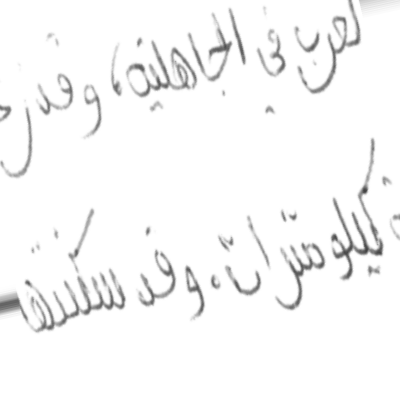 لعرب في الجاهلية، وقد
كيلومترات، وقد سكنتها